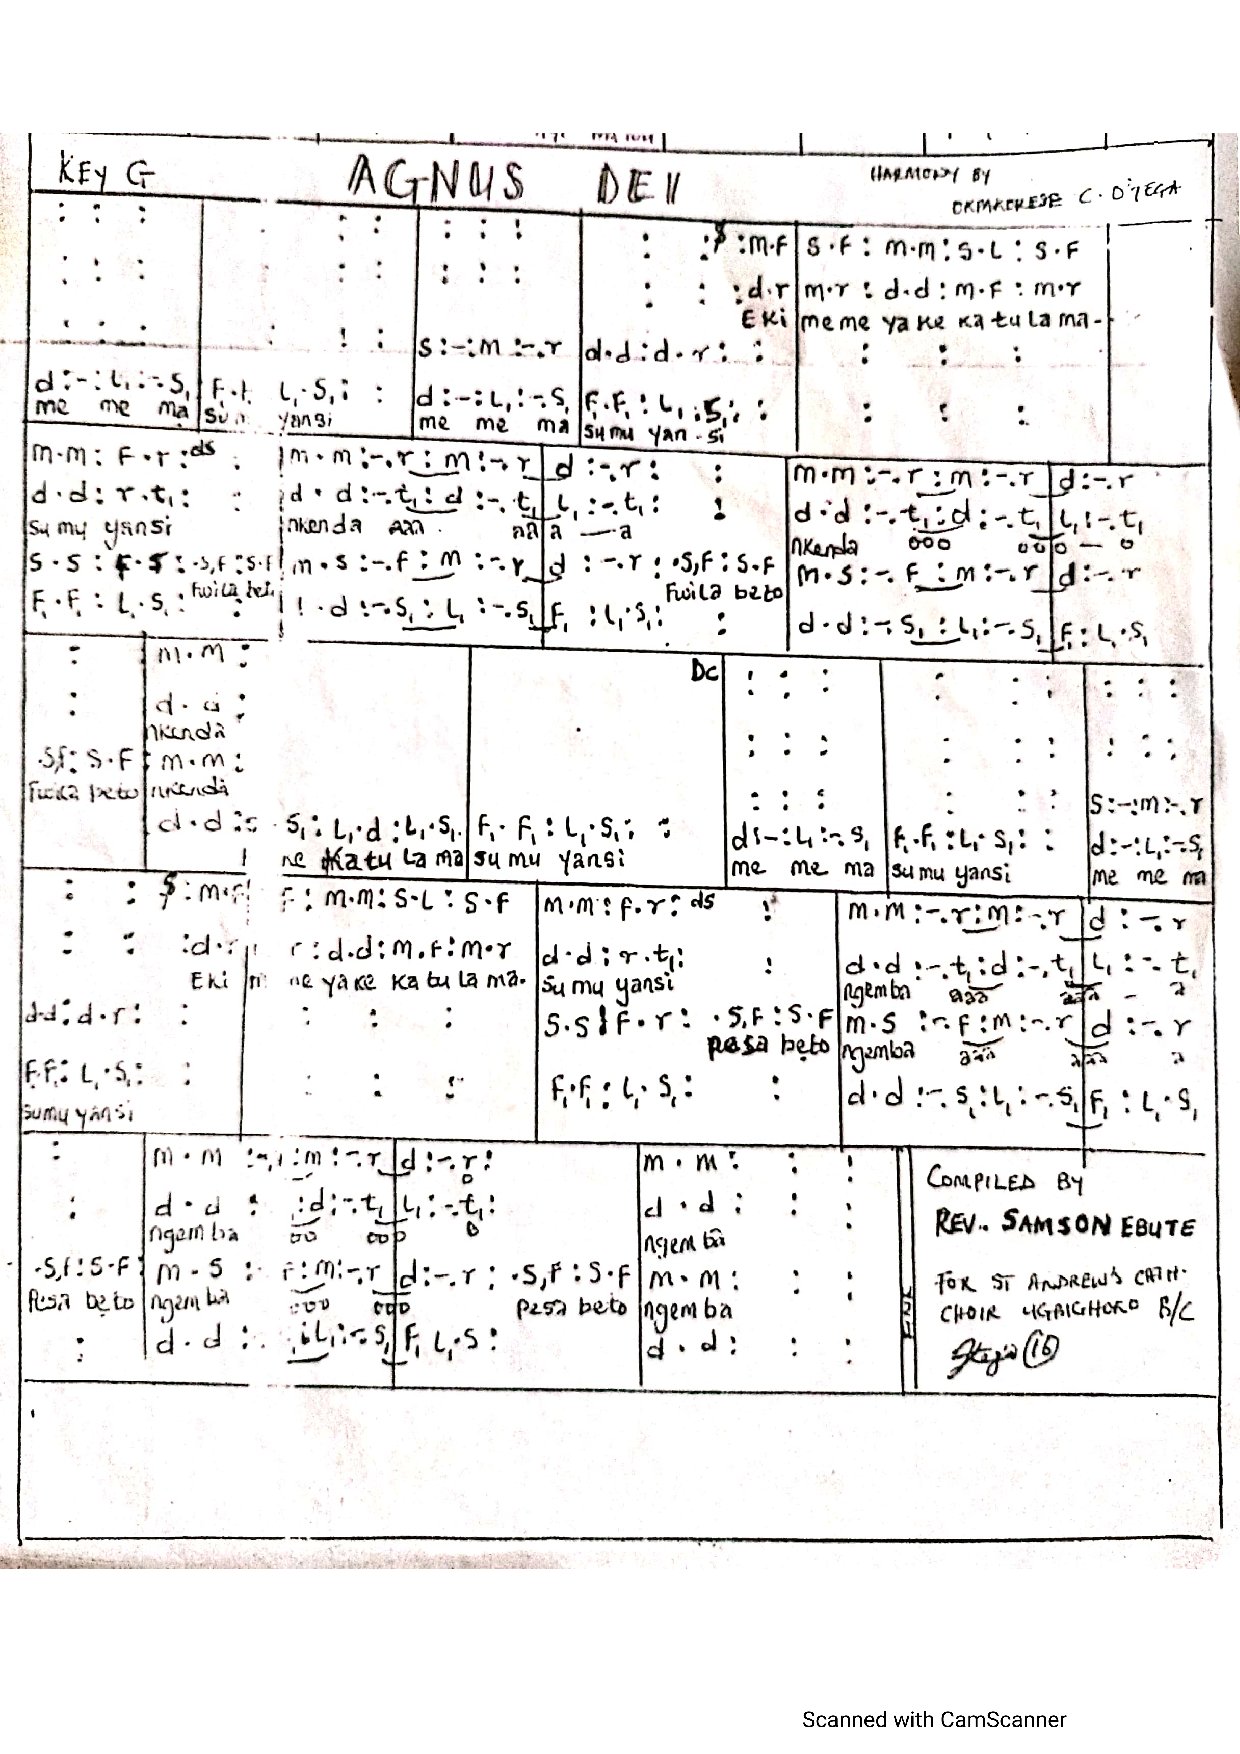 KEY G AGNUS DEI HARMONY BY
C. O'TEGA
: : : : : : : : : : $ :m.f s.f : m.m : s.l : s.f
: : : : : : : : : :d.r m.r : d.d : m.f : m.r
Eki meme ya ke ka tu la ma-
: : : : : s :-:m :-.r d.d : d.r : : : : :
d :-: l₁ :-.s₁ l₁.s₁ : : d :-: l₁ :-.s₁ f₁.f₁ : l₁.s₁ : : : : :
me me ma yansi me me ma su mu yan-si
m.m : f.r : ds : m.m :-.r : m :-.r d :-.r : : m.m :-.r : m :-.r d :-.r
d.d : r.t₁ : d.d :-.t₁ : d :-.t₁ l₁ :-.t₁ : d.d :-.t₁ : d :-.t₁ l₁ :-.t₁
su mu yansi nkenda aaa aa a — a nkenda ooo oo o — o
s.s : f.s : .s,f : s.f m.s :-.f : m :-.r d :-.r : .s,f : s.f m.s :-.f : m :-.r d :-.r
fwila beto
f₁.f₁ : l₁.s₁ : : .d :-.s₁ : l₁ :-.s₁ f₁ : l₁.s₁ : : d.d :-.s₁ : l₁ :-.s₁ f₁ : l₁.s₁
: m.m : DC : : : : : : : : :
: d.d : : : : : : : : : :
nkenda
.s,f : s.f m.m : : : : : : : s :-: m :-.r
fwila beto nkenda
d.d : s₁ : l₁.d : l₁.s₁ f₁.f₁ : l₁.s₁ : : d :-: l₁ :-.s₁ f₁.f₁ : l₁.s₁ : : d :-: l₁ :-.s₁
ne katu la ma su mu yansi me me ma su mu yansi me me ma
: : $ : m.f f : m.m : s.l : s.f m.m : f.r : ds m.m :-.r : m :-.r d :-.r
: : : d.r r : d.d : m.f : m.r d.d : r.t₁ : : d.d :-.t₁ : d :-.t₁ l₁ :-.t₁
Eki ne ya ke ka tu la ma- su mu yansi ngemba aaa aaa - a
d.d : d.r : : : : : s.s : f.r : .s,f : s.f m.s :-.f : m :-.r d :-.r
pesa beto ngemba aaa aaa a
f₁.f₁ : l₁.s₁ : : : : : f₁.f₁ : l₁.s₁ : : d.d :-.s₁ : l₁ :-.s₁ f₁ : l₁.s₁
su mu yansi
: m.m : m :-.r d :-.r : m.m : : :
: d.d : : d :-.t₁ l₁ :-.t₁ : d.d : : :
ngemba oo ooo o ngemba
.s,f : s.f m.s : f : m :-.r d :-.r : .s,f : s.f m.m : : :
Pesa beto ngemba ooo ooo pesa beto ngemba
: d.d : : l₁ :-.s₁ f₁ l₁.s : d.d : : :
COMPILED BY
REV.. SAMSON EBUTE
FOR ST ANDREW'S CATH.
CHOIR B/C
FINE
16
Scanned with CamScanner